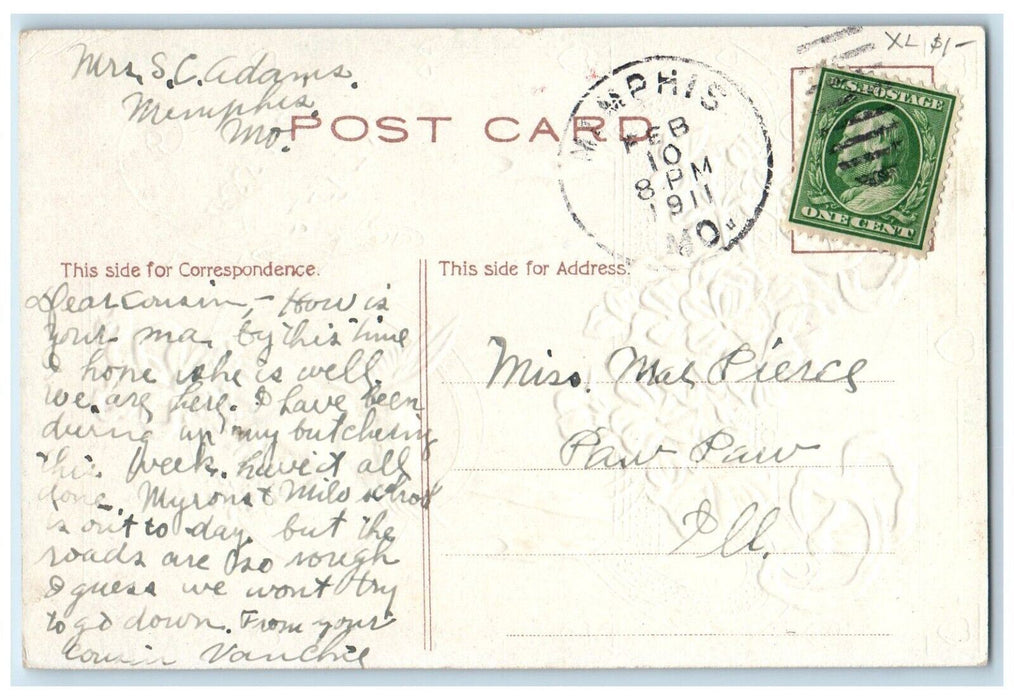 Mrs. S.C. Adams.
Memphis.
Mo.
POST CARD
XL $1-
MEMPHIS
FEB
10
8 PM
1911
MO.
U.S. POSTAGE
ONE CENT
This side for Correspondence.
Dear Cousin, - How is
your ma, by this time
I hope she is well,
we are here. I have been
during up my butchering
this week. have it all
done. Myrons & Milo school
is out to day. but the
roads are so rough
I guess we wont try
to go down. From your
Cousin
This side for Address.
Miss. Mae Pierce
Paw Paw
Ill.